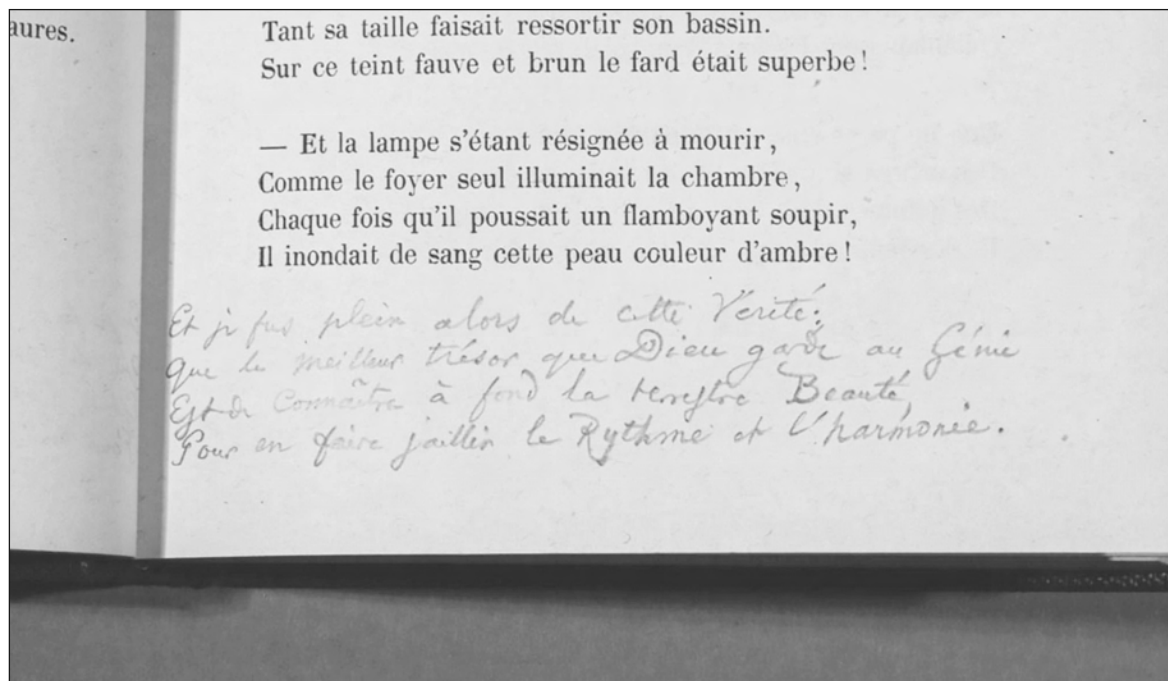 aures.
Tant sa taille faisait ressortir son bassin.
Sur ce teint fauve et brun le fard était superbe !
— Et la lampe s'étant résignée à mourir,
Comme le foyer seul illuminait la chambre,
Chaque fois qu'il poussait un flamboyant soupir,
Il inondait de sang cette peau couleur d'ambre !
Et je fus plein alors de cette Vérité :
Que le meilleur trésor que Dieu garde au Génie
Est de Connaître à fond la terrestre Beauté
Pour en faire jaillir le Rythme et l'harmonie.